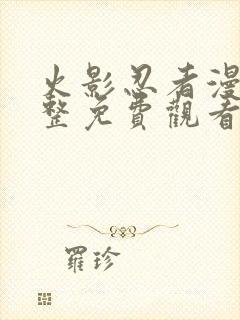 火影忍者漫
整免費觀看
羅珍